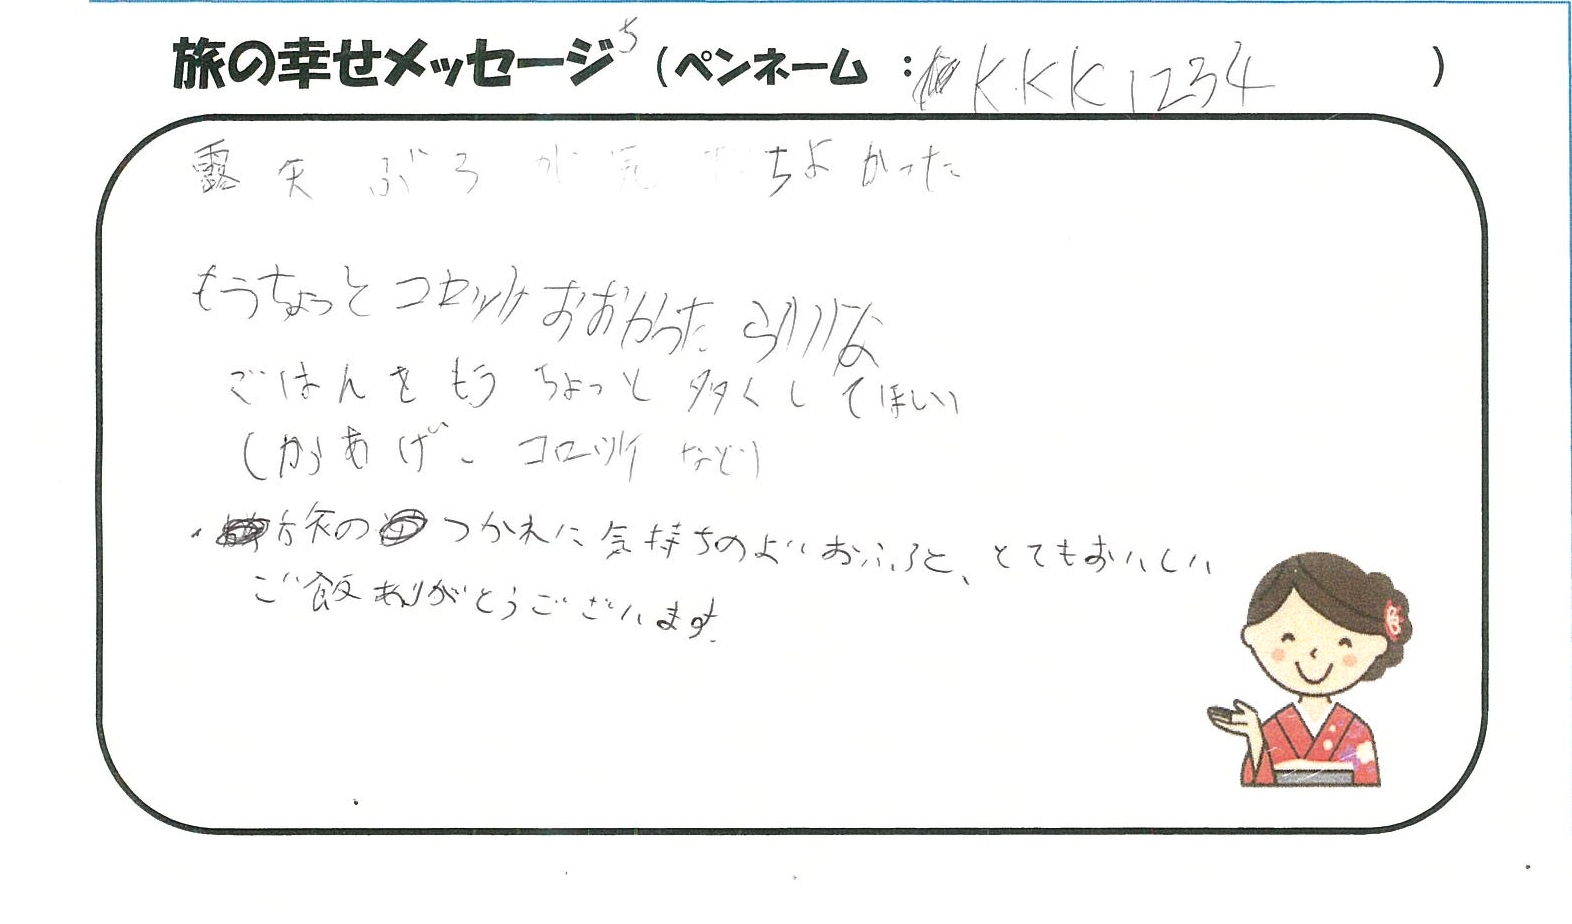 旅の幸せメッセージ ち (ペンネーム : KKK1234 )
露矢ぶろが気もちよかった
もうちょっとコロッケおおかったらいいな
ごはんをもうちょっと多くしてほしい
(からあげ、コロッケなど)
・旅のつかれに気持ちのよいおふろと、とてもおいしい
ご飯ありがとうございます。